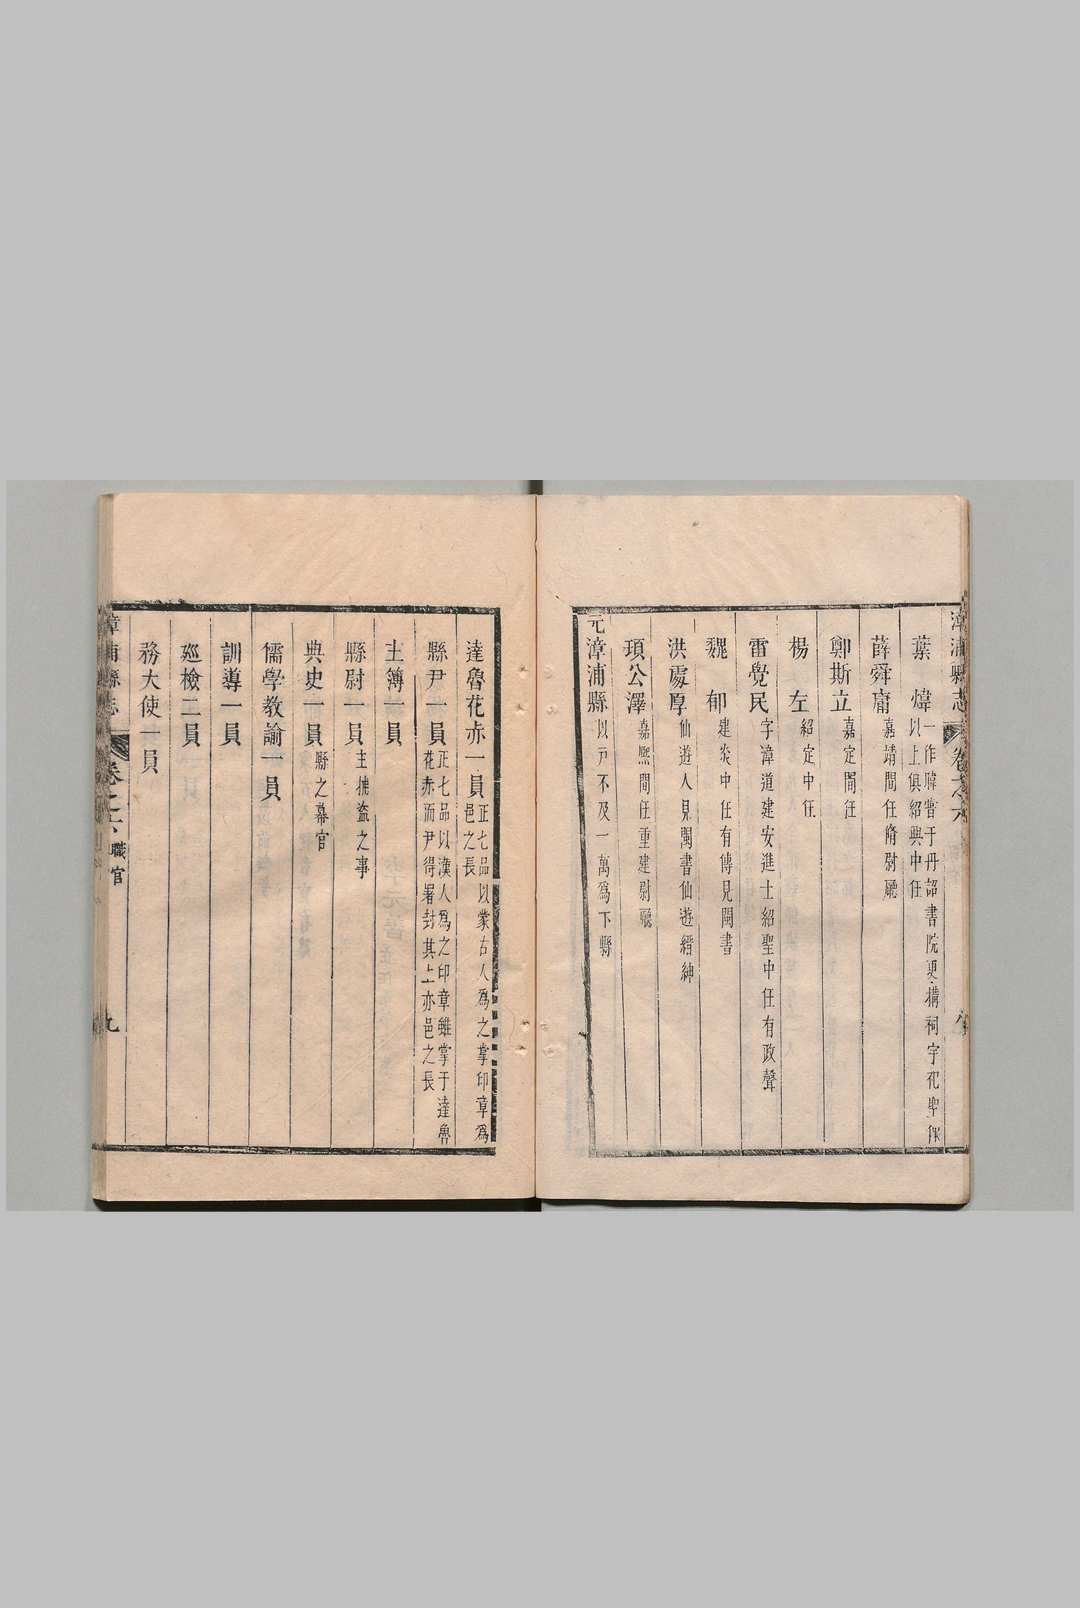 漳浦縣志 卷之六 八
葉煒 一作暐嘗于丹詔書院更搆祠宇祀聖像 以上俱紹興中任
薛舜庸 嘉靖間任脩尉廳
鄭斯立 嘉定間任
楊左 紹定中任
雷覺民 字漳道建安進士紹聖中任有政聲
魏郇 建炎中任有傳見閩書
洪處厚 仙遊人見閩書仙遊縉紳
項公澤 嘉熙間任重建尉廳
元漳浦縣 以戸不及一萬爲下縣
達魯花赤一員 正七品以蒙古人爲之掌印章爲邑之長
縣尹一員 正七品以漢人爲之印章雖掌于達魯花赤而尹得署封其上亦邑之長
主簿一員
縣尉一員 主捕盜之事
典史一員 縣之幕官
儒學教諭一員
訓導一員
廵檢二員
務大使一員
漳浦縣志 卷之六 職官 九